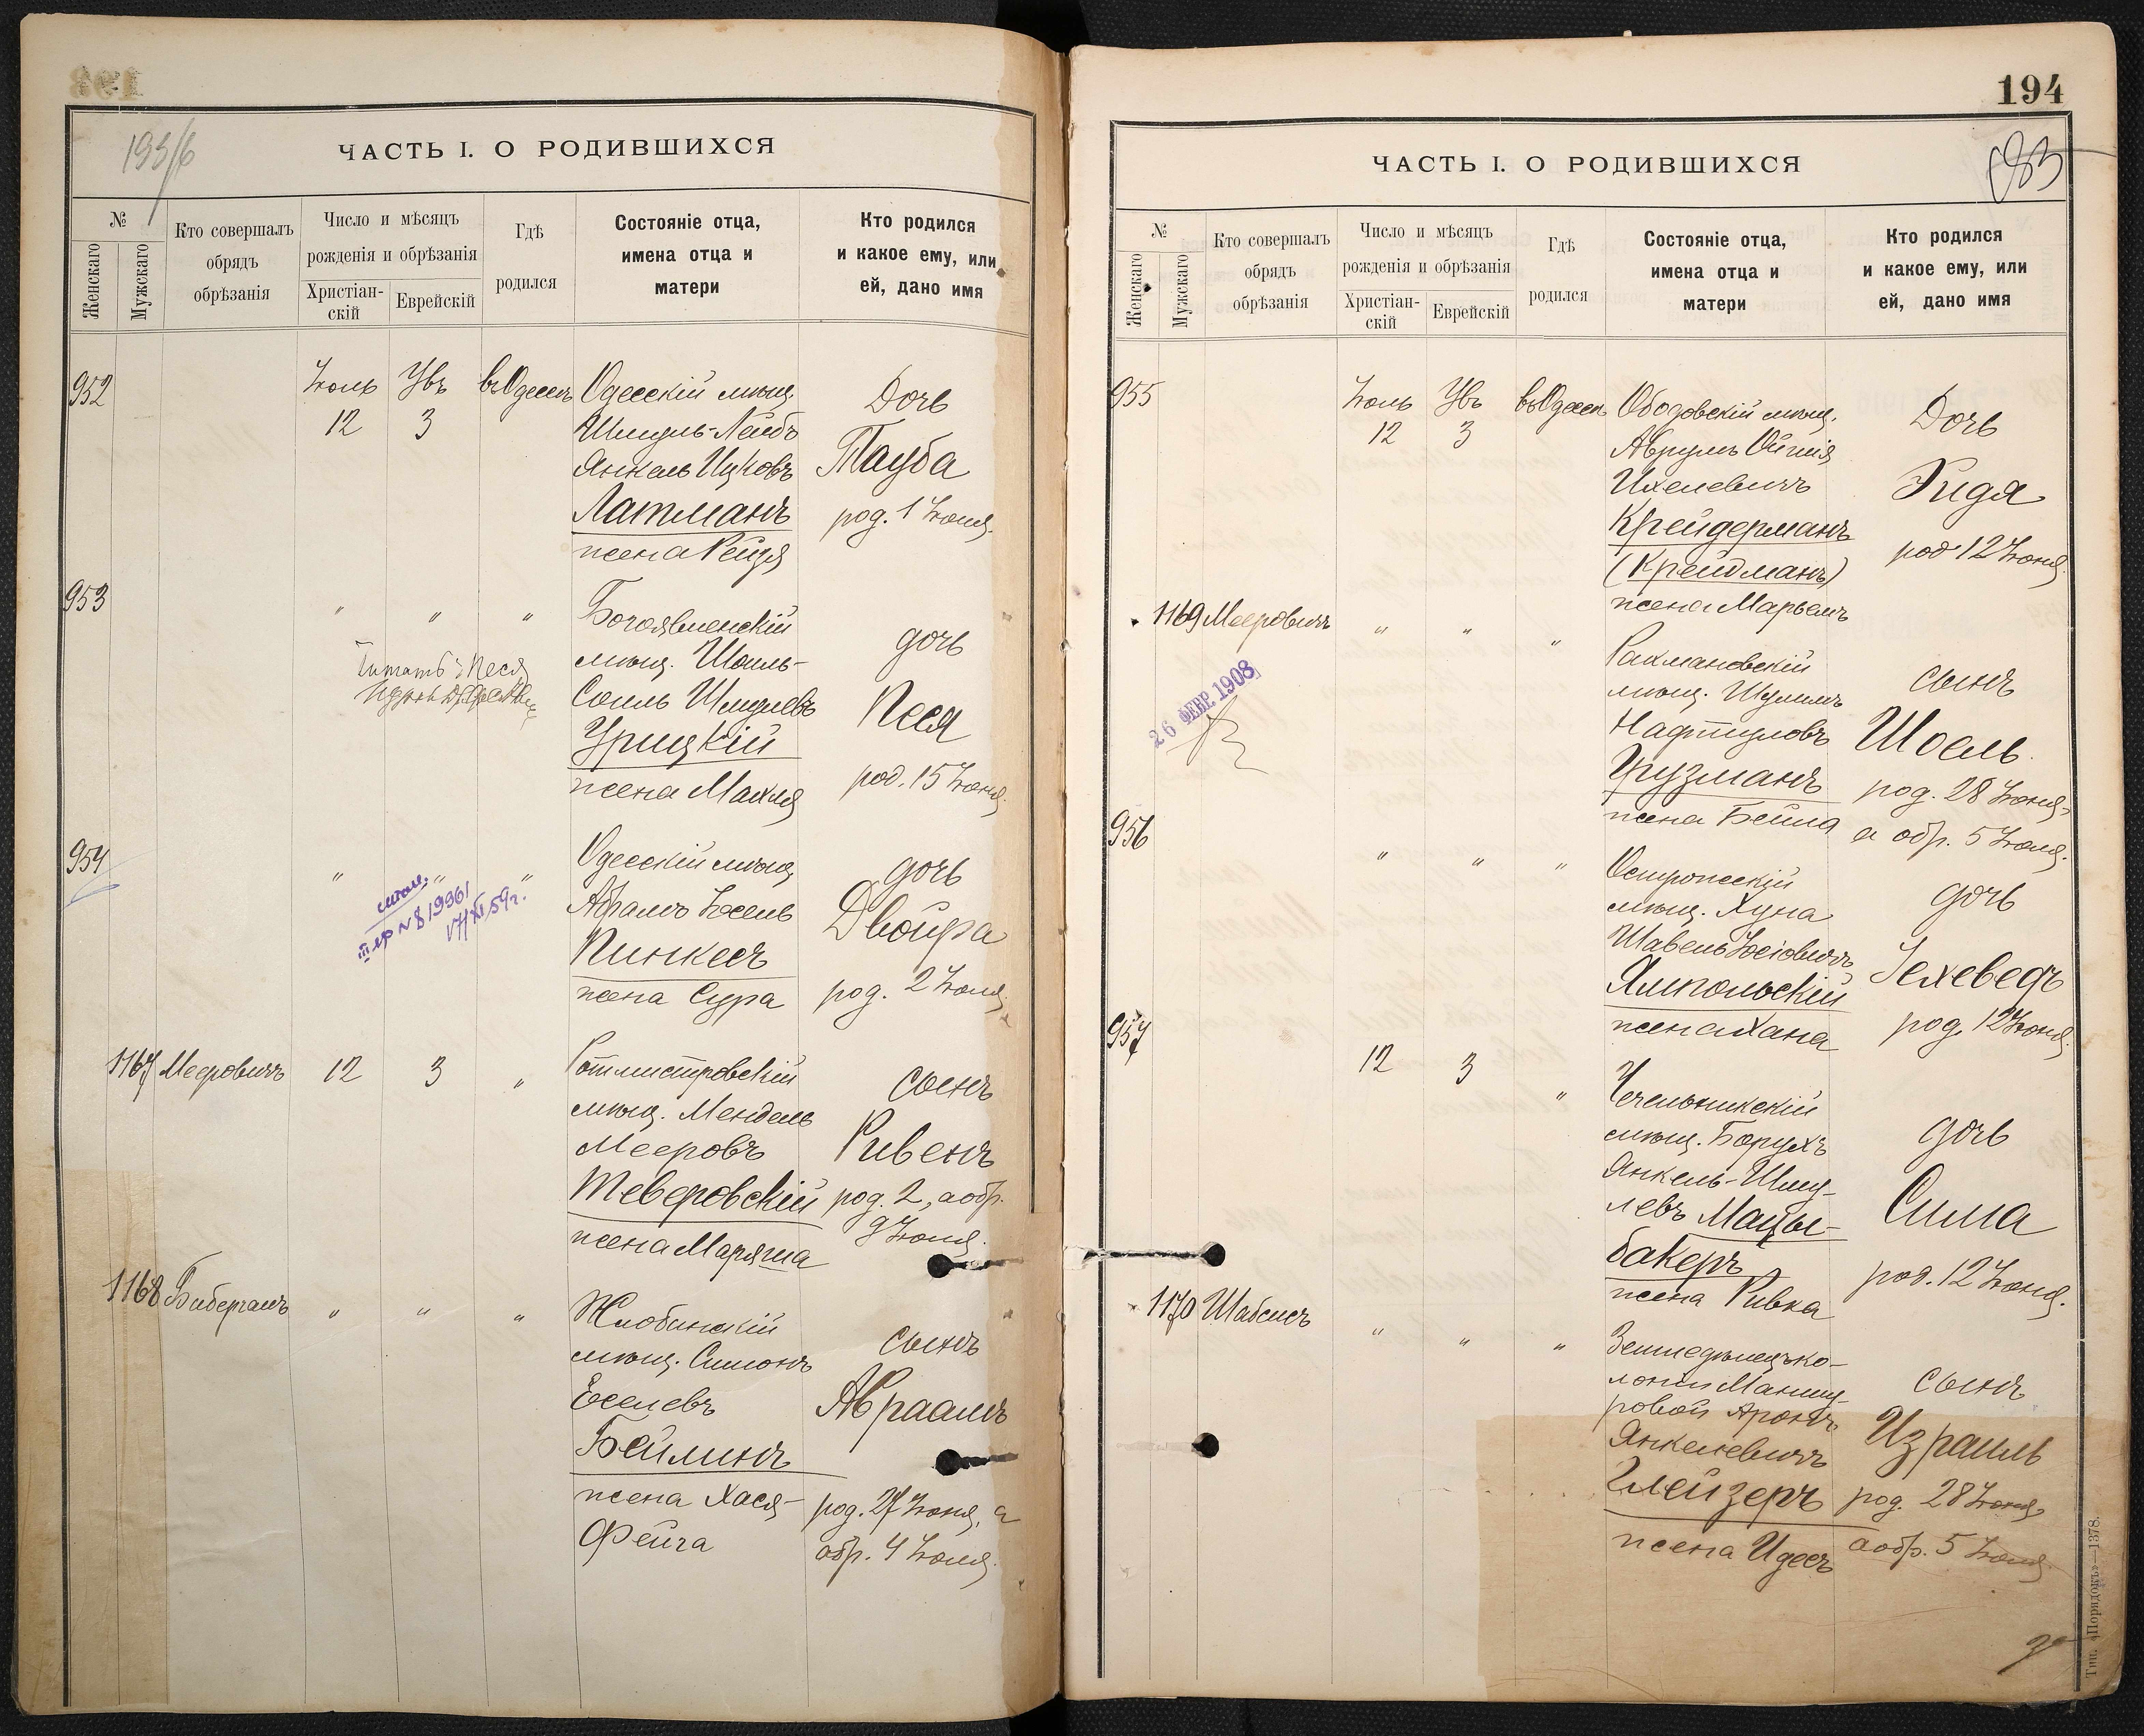 193/6
ЧАСТЬ I. О РОДИВШИХСЯ
№
Женскаго
Мужскаго
Кто совершалъ
обрядъ
обрѣзанія
Число и мѣсяцъ
рожденія и обрѣзанія
Христіан-
скій
Еврейскій
Гдѣ
родился
Состояніе отца,
имена отца и
матери
Кто родился
и какое ему, или
ей, дано имя
952
Іюль
12
3
въ Одессѣ
Одесскій мѣщ.
Шмуль-Лейбъ
Янкель Ицковъ
Латманъ
жена Рейзя
Дочь
Тауба
род. 1 Іюля.
953
" " "
Богоявленскій
мѣщ. Шоиль-
Соиль Шмулевъ
Урицкій
жена Махля
дочь
Песя
род. 15 Іюня.
Читать: Песя
954
" " "
Одесскій мѣщ.
Абрамъ Іосель
Пинкесъ
жена Сура
дочь
Двойра
род. 2 Іюля.
1167 Мееровичъ
12
3
"
Ротмистровскій
мѣщ. Мендель
Мееровъ
Теверовскій
жена Маряша
сынъ
Ривенъ
род. 2, а обр.
9 Іюля.
1168 Бибергалъ
" " "
Жлобинскій
мѣщ. Симонъ
Еселевъ
Бейлинъ
жена Хася-
Фейга
сынъ
Авраамъ
род. 27 Іюня, а
обр. 4 Іюля.
194
183
ЧАСТЬ I. О РОДИВШИХСЯ
№
Женскаго
Мужскаго
Кто совершалъ
обрядъ
обрѣзанія
Число и мѣсяцъ
рожденія и обрѣзанія
Христіан-
скій
Еврейскій
Гдѣ
родился
Состояніе отца,
имена отца и
матери
Кто родился
и какое ему, или
ей, дано имя
955
Іюль
12
3
въ Одессѣ
Ободовскій мѣщ.
Аврумъ
Ихелевичъ
Крейдерманъ
(Крейдманъ)
жена Марьемъ
Дочь
Гидя
род. 12 Іюня.
1169 Мееровичъ
" " "
26 ФЕВР. 1908
Рахмановскій
мѣщ. Шулимъ
Нафтуловъ
Грузманъ
жена Бейла
сынъ
Шоель.
род. 28 Іюня,
а обр. 5 Іюля.
956
" " "
Остропскій
мѣщ. Хуна
Шавель Іосіовичъ
Ямпольскій
жена Хана
дочь
Іехеведъ
род. 12 Іюня.
957
12
3
"
Чечельникскій
мѣщ. Борухъ
Янкель-Шму-
левъ Мацы-
бакеръ
жена Ривка
дочь
Сима
род. 12 Іюня.
1170 Шабсисъ
" " "
Земледѣлецъ ко-
лоніи Манзу-
ровой Аронъ
Янкелевичъ
Глейзеръ
жена Идесъ
сынъ
Израиль
род. 28 Іюня,
а обр. 5 Іюля
Тип. «Порядокъ»—1378.